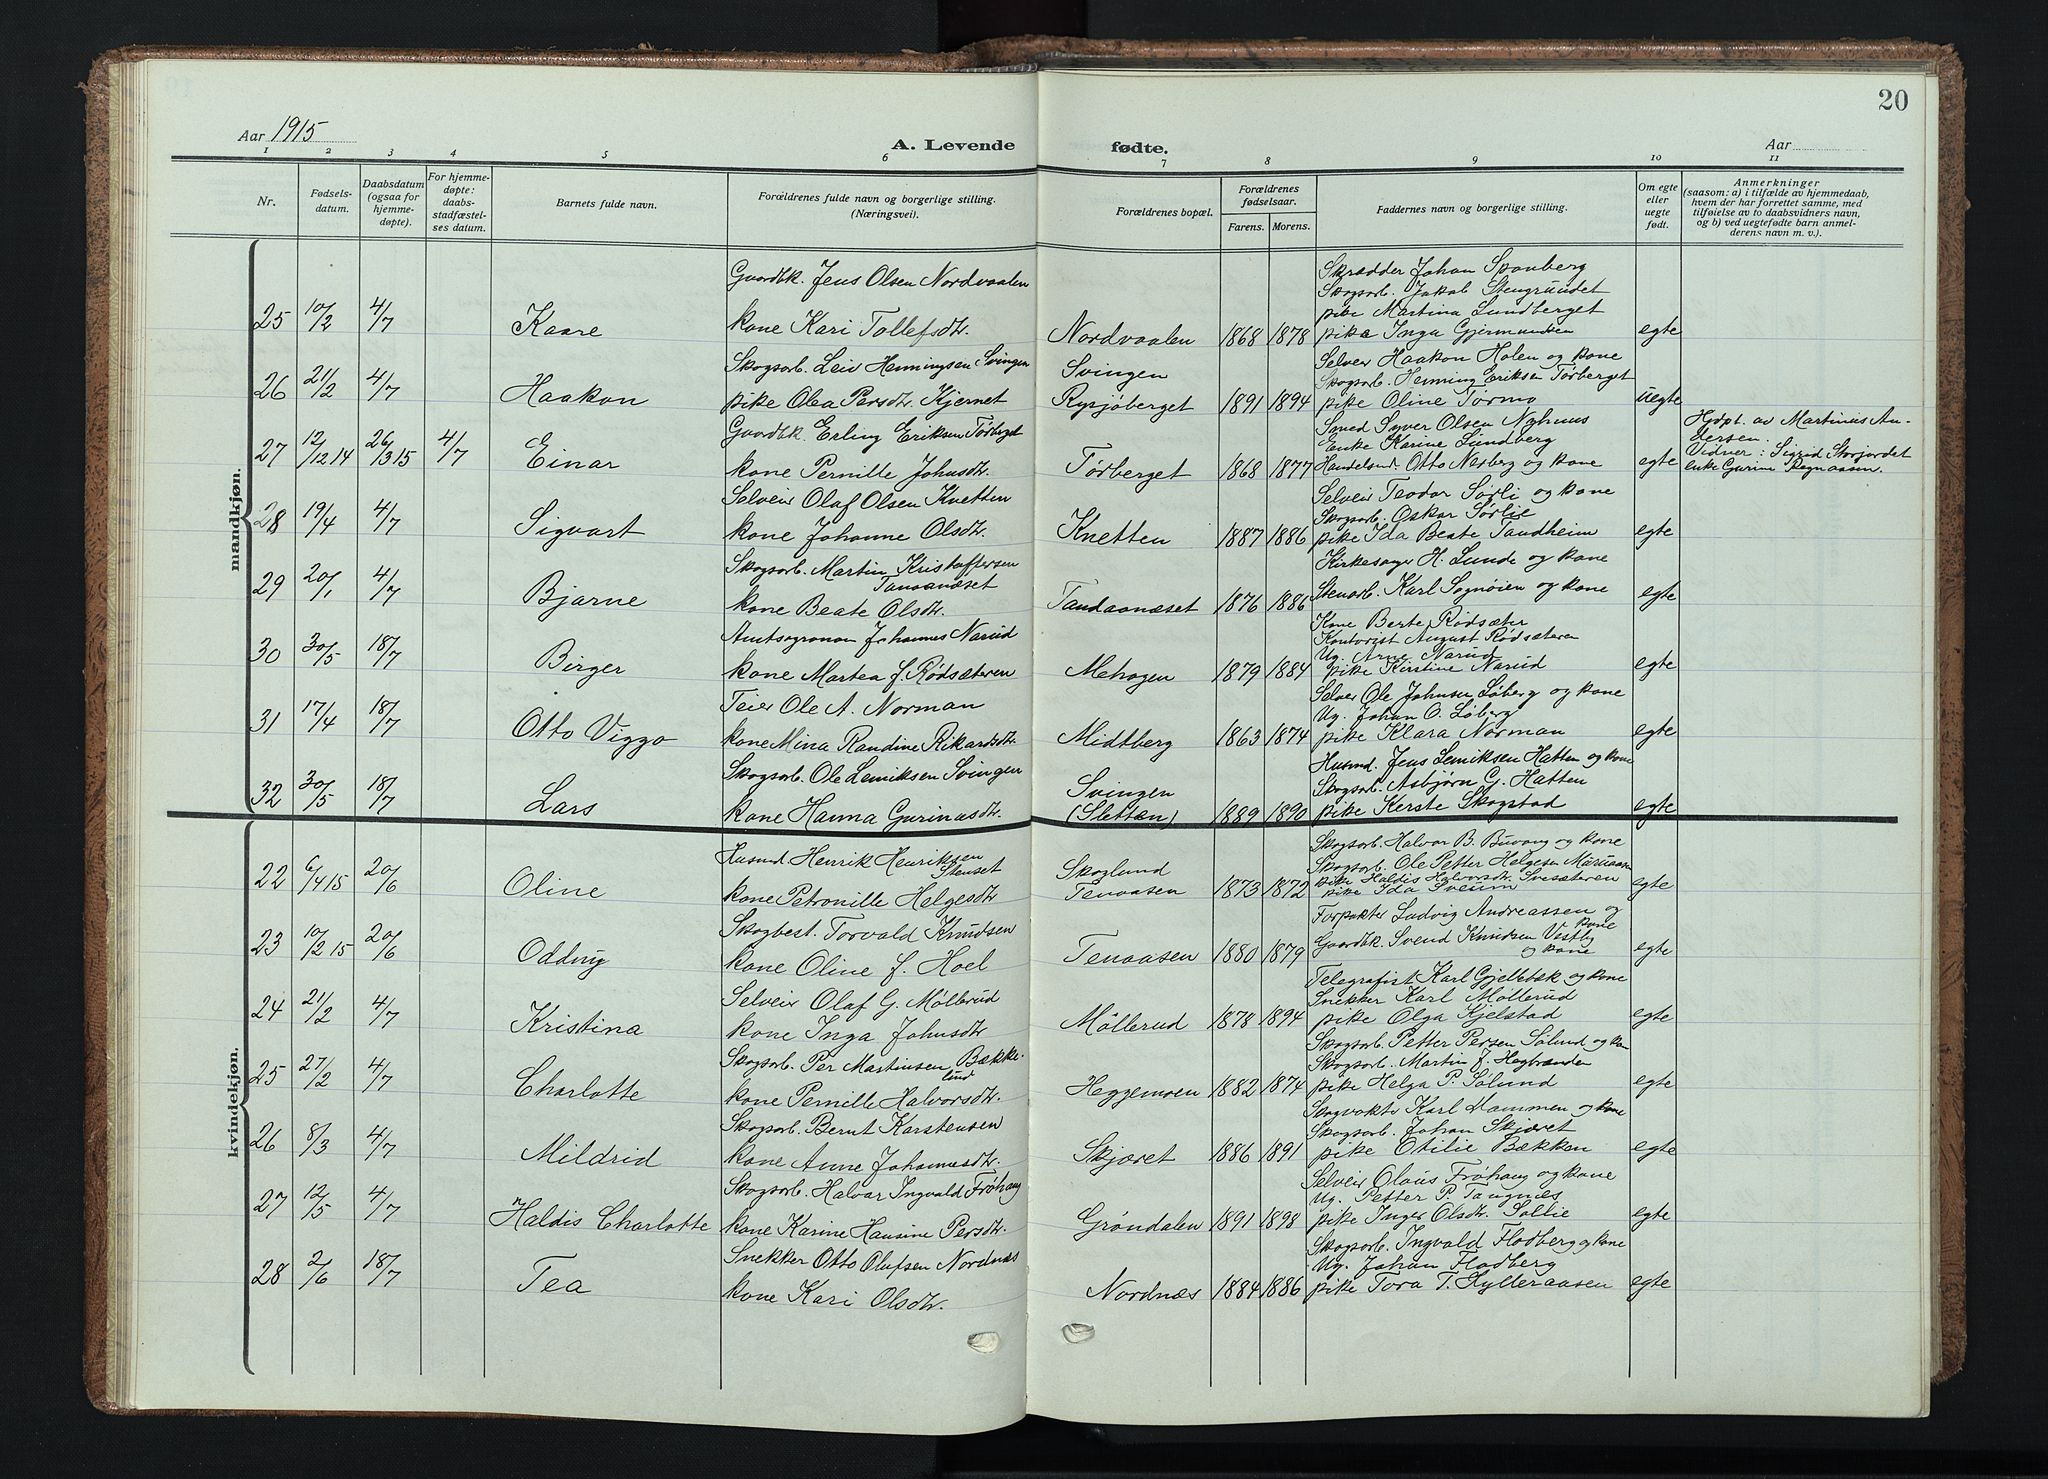 20
Aar 1915
A. Levende
fødte.
Aar
1 2 3 4 5 6 7 8 9 10 11
Nr.
Fødsels-
datum.
Daabsdatum
(ogsaa for
hjemme-
døpte).
For hjemme-
døpte:
daabs-
stadfæstel-
ses datum.
Barnets fulde navn.
Forældrenes fulde navn og borgerlige stilling.
(Næringsvei).
Forældrenes bopæl.
Forældrenes
fødselsaar.
Farens. Morens.
Faddernes navn og borgerlig stilling.
Om egte
eller
uegte
født.
Anmerkninger
(saasom: a) i tilfælde av hjemmedaab,
hvem der har forrettet samme, med
tilføielse av to daabsvidners navn,
og b) ved uegtefødte barn anmel-
derens navn m. v.).
mandkjøn.
Gaardbk. Jens Olsen Nordvaalen
Skrædder Johan Sponberg
Skogsarb. Jakob Stengrundet
pike Martina Lundberget
25 10/2 4/7 Kaare kone Kari Tollefsdtr. Nordvaalen 1868 1878 pike Inga Gjermundsen egte
Skogsarb. Leiv Henningsen Svingen
Svingen
Selveier Haakon Holen og kone
Skogsarb. Henning Eriksen Tørberget
26 21/2 4/7 Haakon pike Olea Persdtr. Kjernet Rysjøberget 1891 1894 pike Oline Tormo uegte
Gaardbk. Erling Eriksen Tørberget
Smed Syver Olsen Nyhuus
Enke Karine Lundberg
Hjdpt. av Martinus An-
dersen.
27 12/12 14 26/3 15 4/7 Einar kone Pernille Johnsdtr. Tørberget 1868 1877 Handelsmd. Otto Neberg og kone egte
Vidner: Sigrid Storjordet
enke Gurine Regnaasen.
Selveir Olaf Olsen Knetten
Selveir Teodor Sørli og kone
Skogsarb. Oskar Sørlie
28 19/4 4/7 Sigvart kone Johanne Olsdtr. Knetten 1887 1886 pike Ida Beate Tandheim egte
Skogsarb. Martin Kristoffersen
Tanaanæset
Kirkesager H. Lunde og kone
29 20/1 4/7 Bjarne kone Beate Olsdtr. Tandaanæset 1876 1886 Stenarb. Karl Sognøien og kone egte
Amtsagronom Johannes Narud
Kone Berte Rødsæter
Kontorist August Rødsæteren
Ug. Arne Narud
30 30/5 18/7 Birger kone Martea f. Rødsæteren Mehagen 1879 1884 pike Kirstine Narud egte
Teier Ole A. Norman
Selveir Ole Johnsen Løberg og kone
Ug. Johan O. Løberg
31 17/4 18/7 Otto Viggo kone Mina Randine Rikardsdtr. Midtberg 1863 1874 pike Klara Norman egte
Skogsarb. Ole Lemiksen Svingen
Svingen
Husmd. Jens Lemiksen Hatten og kone
Skogsarb. Asbjørn G. Hatten
32 30/5 18/7 Lars kone Hanna Gurinasdtr. (Sletten) 1889 1890 pike Kerste Skogstad egte
kvindekjøn.
Husmd Henrik Henriksen
Stenset
Skoglund
Skogsarb. Halvor B. Buvang og kone
Skogsarb. Ole Petter Helgesen Maruaasen
pike Haldis Halvorsdtr. Svesæteren
22 6/4 15 20/6 Oline kone Petronille Helgesdtr Tenaasen 1873 1872 pike Ida Sveum egte
Skogbest. Torvald Knudsen
Forpakter Ludvig Andreassen og
kone
Gaardbk. Svend Knudsen Vestby
23 10/2 15 20/6 Oddny kone Oline f. Hoel Tenaasen 1880 1879 og kone egte
Selveir Olaf G. Møllerud
Telegrafist Karl Gjellebæk og kone
Snekker Karl Møllerud
24 21/2 4/7 Kristina kone Inga Johnsdtr Møllerud 1878 1894 pike Olga Kjelstad egte
Skogsarb. Per Martinsen Bække-
lund
Skogsarb. Petter Persen Sølund og kon
Skogsarb. Martin J. Hegbranden
25 27/2 4/7 Charlotte kone Pernille Halvorsdtr. Heggemoen 1882 1874 pike Helga P. Sølund egte
Skogsarb. Bernt Karstensen
Skogvokter Karl Mammen og kone
Skogsarb. Johan Skjæret
26 8/3 4/7 Mildrid kone Anne Johannesdtr. Skjæret 1886 1891 pike Otilie Bækken egte
Skogsarb. Halvar Ingvald Frøhaug
Selveir Olaus Frøhaug og kone
Ug. Petter P. Tangnæs
27 12/5 4/7 Haldis Charlotte kone Karine Hansine Persdtr. Grøndalen 1891 1898 pike Inger Olsdtr. Sollie egte
Snekker Otto Olufsen Nordnæs
Skogsarb. Ingvald Flodberg og kone
Ug. Johan Flodberg
28 2/6 18/7 Tea kone Kari Olsdtr. Nordnæs 1884 1886 pike Tora T. Hylleraasen egte